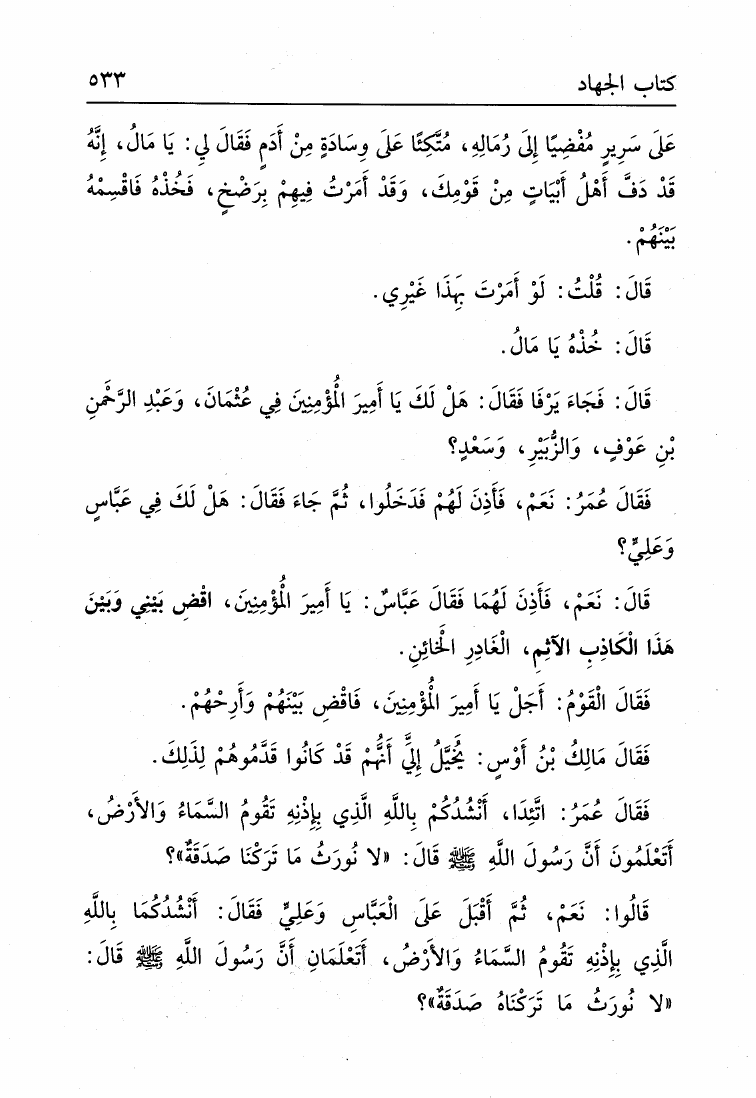 كتاب الجهاد ٥٣٣
عَلَى سَرِيرٍ مُفْضِيًا إِلَى رُمَالِهِ، مُتَّكِئًا عَلَى وِسَادَةٍ مِنْ أَدَمٍ فَقَالَ لِي: يَا مَالُ، إِنَّهُ
قَدْ دَفَّ أَهْلُ أَبْيَاتٍ مِنْ قَوْمِكَ، وَقَدْ أَمَرْتُ فِيهِمْ بِرَضْخٍ، فَخُذْهُ فَاقْسِمْهُ
بَيْنَهُمْ.
قَالَ: قُلْتُ: لَوْ أَمَرْتَ بِهَذَا غَيْرِي.
قَالَ: خُذْهُ يَا مَالُ.
قَالَ: فَجَاءَ يَرْفَا فَقَالَ: هَلْ لَكَ يَا أَمِيرَ الْمُؤْمِنِينَ فِي عُثْمَانَ، وَعَبْدِ الرَّحْمٰنِ
بْنِ عَوْفٍ، وَالزُّبَيْرِ، وَسَعْدٍ؟
فَقَالَ عُمَرُ: نَعَمْ، فَأَذِنَ لَهُمْ فَدَخَلُوا، ثُمَّ جَاءَ فَقَالَ: هَلْ لَكَ فِي عَبَّاسٍ
وَعَلِيٍّ؟
قَالَ: نَعَمْ، فَأَذِنَ لَهُمَا فَقَالَ عَبَّاسٌ: يَا أَمِيرَ الْمُؤْمِنِينَ، اقْضِ بَيْنِي وَبَيْنَ
هَذَا الْكَاذِبِ الآثِمِ، الْغَادِرِ الْخَائِنِ.
فَقَالَ الْقَوْمُ: أَجَلْ يَا أَمِيرَ الْمُؤْمِنِينَ، فَاقْضِ بَيْنَهُمْ وَأَرِحْهُمْ.
فَقَالَ مَالِكُ بْنُ أَوْسٍ: يُخَيَّلُ إِلَيَّ أَنَّهُمْ قَدْ كَانُوا قَدَّمُوهُمْ لِذَلِكَ.
فَقَالَ عُمَرُ: اتَّئِدَا، أَنْشُدُكُمْ بِاللَّهِ الَّذِي بِإِذْنِهِ تَقُومُ السَّمَاءُ وَالأَرْضُ،
أَتَعْلَمُونَ أَنَّ رَسُولَ اللَّهِ ﷺ قَالَ: «لا نُورَثُ مَا تَرَكْنَا صَدَقَةٌ»؟
قَالُوا: نَعَمْ، ثُمَّ أَقْبَلَ عَلَى الْعَبَّاسِ وَعَلِيٍّ فَقَالَ: أَنْشُدُكُمَا بِاللَّهِ
الَّذِي بِإِذْنِهِ تَقُومُ السَّمَاءُ وَالأَرْضُ، أَتَعْلَمَانِ أَنَّ رَسُولَ اللَّهِ ﷺ قَالَ:
«لا نُورَثُ مَا تَرَكْنَاهُ صَدَقَةٌ»؟